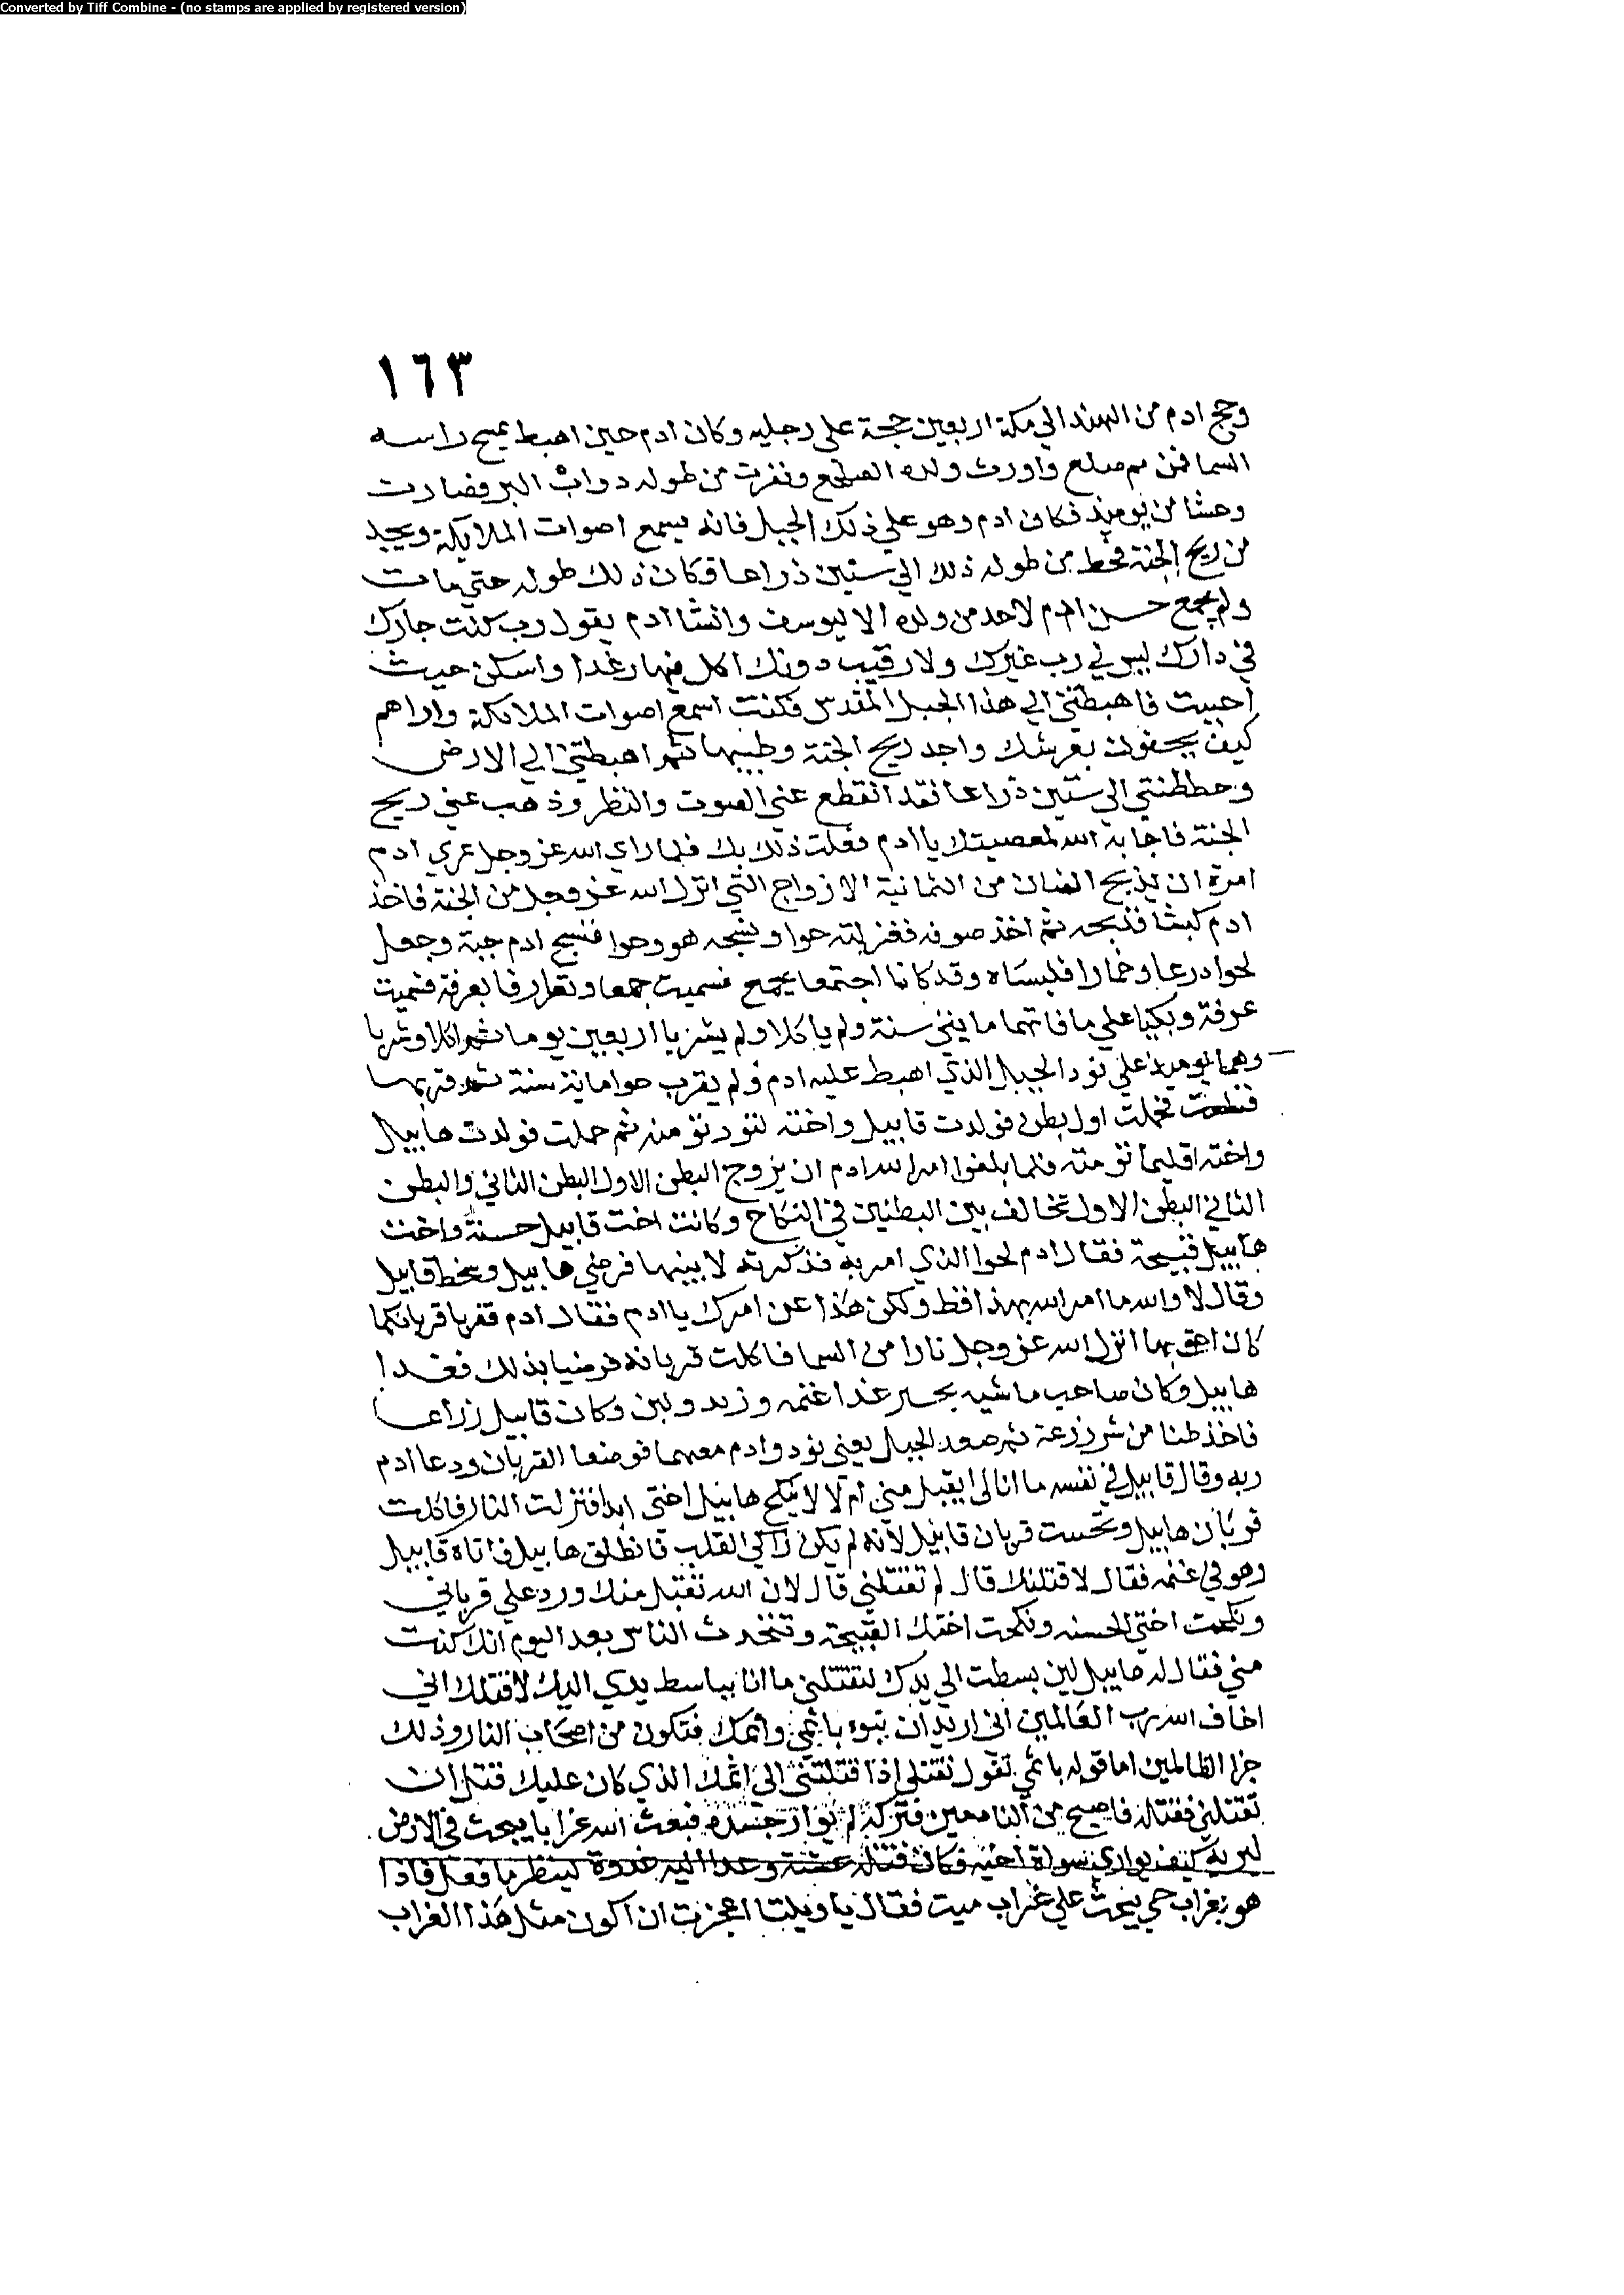 Converted by Tiff Combine - (no stamps are applied by registered version)
١٦٣
وحج ادم من الهند الي مكة اربعين حجة علي رجليه وكان ادم حين اهبط يمسح راسه
السما فمن ثم صلع واورث ولده الصلع ونفرت من طوله دواب البر فصارت
وحشا من يوميذ فكان ادم وهو علي ذلك الجبل فانه يسمع اصوات الملايكة ويجد
من ريح الجنة فحط من طوله ذلك الي ستين ذراعا فكان ذلك طوله حتي مات
ولم يجمع حسن ادم لاحد من ولده الا ليوسف وانشا ادم يقول رب كنت جارك
في دارك ليس لي رب غيرك ولا رقيب دونك اكل فيها رغدا واسكن حيث
احببت فاهبطتني الي هذا الجبل المقدس فكنت اسمع اصوات الملايكة واراهم
كيف يحفون بعرشك واجد ريح الجنة وطيبها ثم اهبطتني الي الارض
وحططتني الي ستين ذراعا فقد انقطع عني الصوت والنظر وذهب عني ريح
الجنة فاجابه الله لمعصيتك ياادم فعلت ذلك بك فلما راي الله عز وجل عري ادم
امره ان يذبح الضان من الثمانية الازواج التي انزل الله عز وجل من الجنة فاخذ
ادم كبشا فذبحه ثم اخذ صوفه فغزلته حوا ونسجه هو وحوا فنسج ادم جبة وجعل
لحوا درعا وخمارا فلبساه وقد كانا اجتمعا بجمع فسميت جمعا وتعارفا بعرفة فسميت
عرفة وبكيا علي ما فاتهما مايتي سنة ولم ياكلا ولم يشربا اربعين يوما ثم اكلا وشربا
وهما يوميذ علي نود الجبل الذي اهبط عليه ادم ولم يقرب حوا ماية سنة ثم قربها
فحملت اول بطن فولدت قابيل واخته لبود تومته ثم حملت فولدت هابيل
واخته اقليما تومته فلما بلغوا امر الله ادم ان يزوج البطن الاول البطن الثاني والبطن
الثاني البطن الاول يخالف بين البطنين في النكاح وكانت اخت قابيل حسنة واخت
هابيل قبيحة فقال ادم لحوا الذي امر به فذكرته لابنيها فرضي هابيل وسخط قابيل
وقال لا والله ما امر الله بهذا قط ولكن هذا عن امرك ياادم فقال ادم فقربا قربانكما
كان احق بها انزل الله عز وجل نارا من السما فاكلت قربانه فرضيا بذلك فغدا
هابيل وكان صاحب ماشيه غدا غنمه وزبد ولبن وكان قابيل زراعا
فاخذ طنا من شر زرعه ثم صعد الجبل يعني نود وادم معهما فوضعا القربان ودعا ادم
ربه وقال قابيل في نفسه ما ابالي ايقبل مني ام لا لا ينكح هابيل اختي ابدا فنزلت النار فاكلت
قربان هابيل وتجنبت قربان قابيل لانه لم يكن زاكي القلب فانطلق هابيل فاتاه قابيل
وهو في غنمه فقال لاقتلنك قال لم تقتلني قال لان الله تقبل منك ورد علي قرباني
ونكحت اختي الحسنه ونكحت اختك القبيحة وتتحدث الناس بعد اليوم انك كنت
مني فقال له هابيل لين بسطت الي يدك لتقتلني ما انا بباسط يدي اليك لاقتلك اني
اخاف الله رب العالمين اني اريد ان تبوء باثمي واثمك فتكون من اصحاب النار وذلك
جزا الظالمين اما قوله باثمي تقول بقتلي اذا قتلتني الي اثمك الذي كان عليك قبل ان
تقتلني فقتله فاصبح من النادمين فتركه لم يوار جسده فبعث الله غرابا يبحث في الارض
ليريه كيف يواري سواة اخيه فكان قتله عشية وغدا اليه غدوة لينظر ما فعل فاذا
هو بغراب حي يبحث علي غراب ميت فقال ياويلتا اعجزت ان اكون مثل هذا الغراب